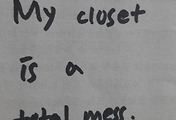 My closet
is a
total mess.